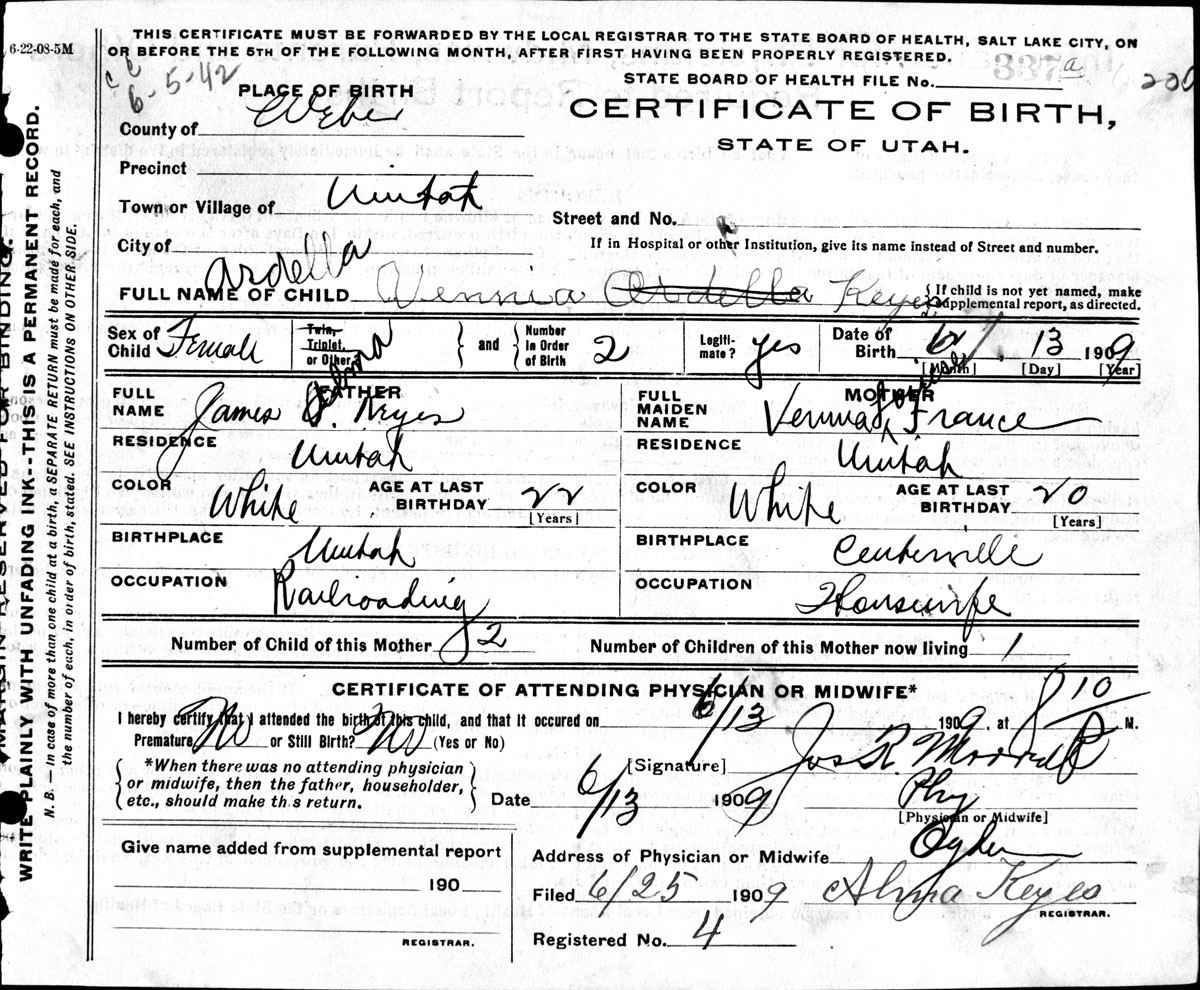 6-22-08-5M
THIS CERTIFICATE MUST BE FORWARDED BY THE LOCAL REGISTRAR TO THE STATE BOARD OF HEALTH, SALT LAKE CITY, ON
OR BEFORE THE 5TH OF THE FOLLOWING MONTH, AFTER FIRST HAVING BEEN PROPERLY REGISTERED.
6-5-42
STATE BOARD OF HEALTH FILE No. a 200
PLACE OF BIRTH
CERTIFICATE OF BIRTH,
STATE OF UTAH.
County of Weber
Precinct
Town or Village of Uintah
Street and No.
City of
If in Hospital or other Institution, give its name instead of Street and number.
Ardella
FULL NAME OF CHILD Vennia Ardella Keyes { If child is not yet named, make supplemental report, as directed.
Sex of Child Female Twin, Triplet, or Other } and { Number in Order of Birth 2 Legiti-mate? yes Date of Birth 6 13 1909
[Month] [Day] [Year]
FATHER MOTHER
FULL NAME James Keyes
FULL MAIDEN NAME Vennia France
RESIDENCE Uintah
RESIDENCE Uintah
COLOR White AGE AT LAST BIRTHDAY 22 [Years]
COLOR White AGE AT LAST BIRTHDAY 20 [Years]
BIRTHPLACE Uintah
BIRTHPLACE Centerville
OCCUPATION Railroading
OCCUPATION Housewife
Number of Child of this Mother 2 Number of Children of this Mother now living 1
CERTIFICATE OF ATTENDING PHYSICIAN OR MIDWIFE*
I hereby certify that I attended the birth of this child, and that it occured on 6/13 1909. at 8 10 P M.
Premature No or Still Birth? No (Yes or No)
{ *When there was no attending physician or midwife, then the father, householder, etc., should make this return. }
[Signature] Jos R. Morrell
Date 6/13 1909 Phy
[Physician or Midwife]
Give name added from supplemental report
190
REGISTRAR.
Address of Physician or Midwife Ogden
Filed 6/25 1909 Alma Keyes
REGISTRAR.
Registered No. 4
MARGIN RESERVED FOR BINDING.
WRITE PLAINLY WITH UNFADING INK--THIS IS A PERMANENT RECORD.
N. B. — In case of more than one child at a birth, a SEPARATE RETURN must be made for each, and
the number of each, in order of birth, stated. SEE INSTRUCTIONS ON OTHER SIDE.